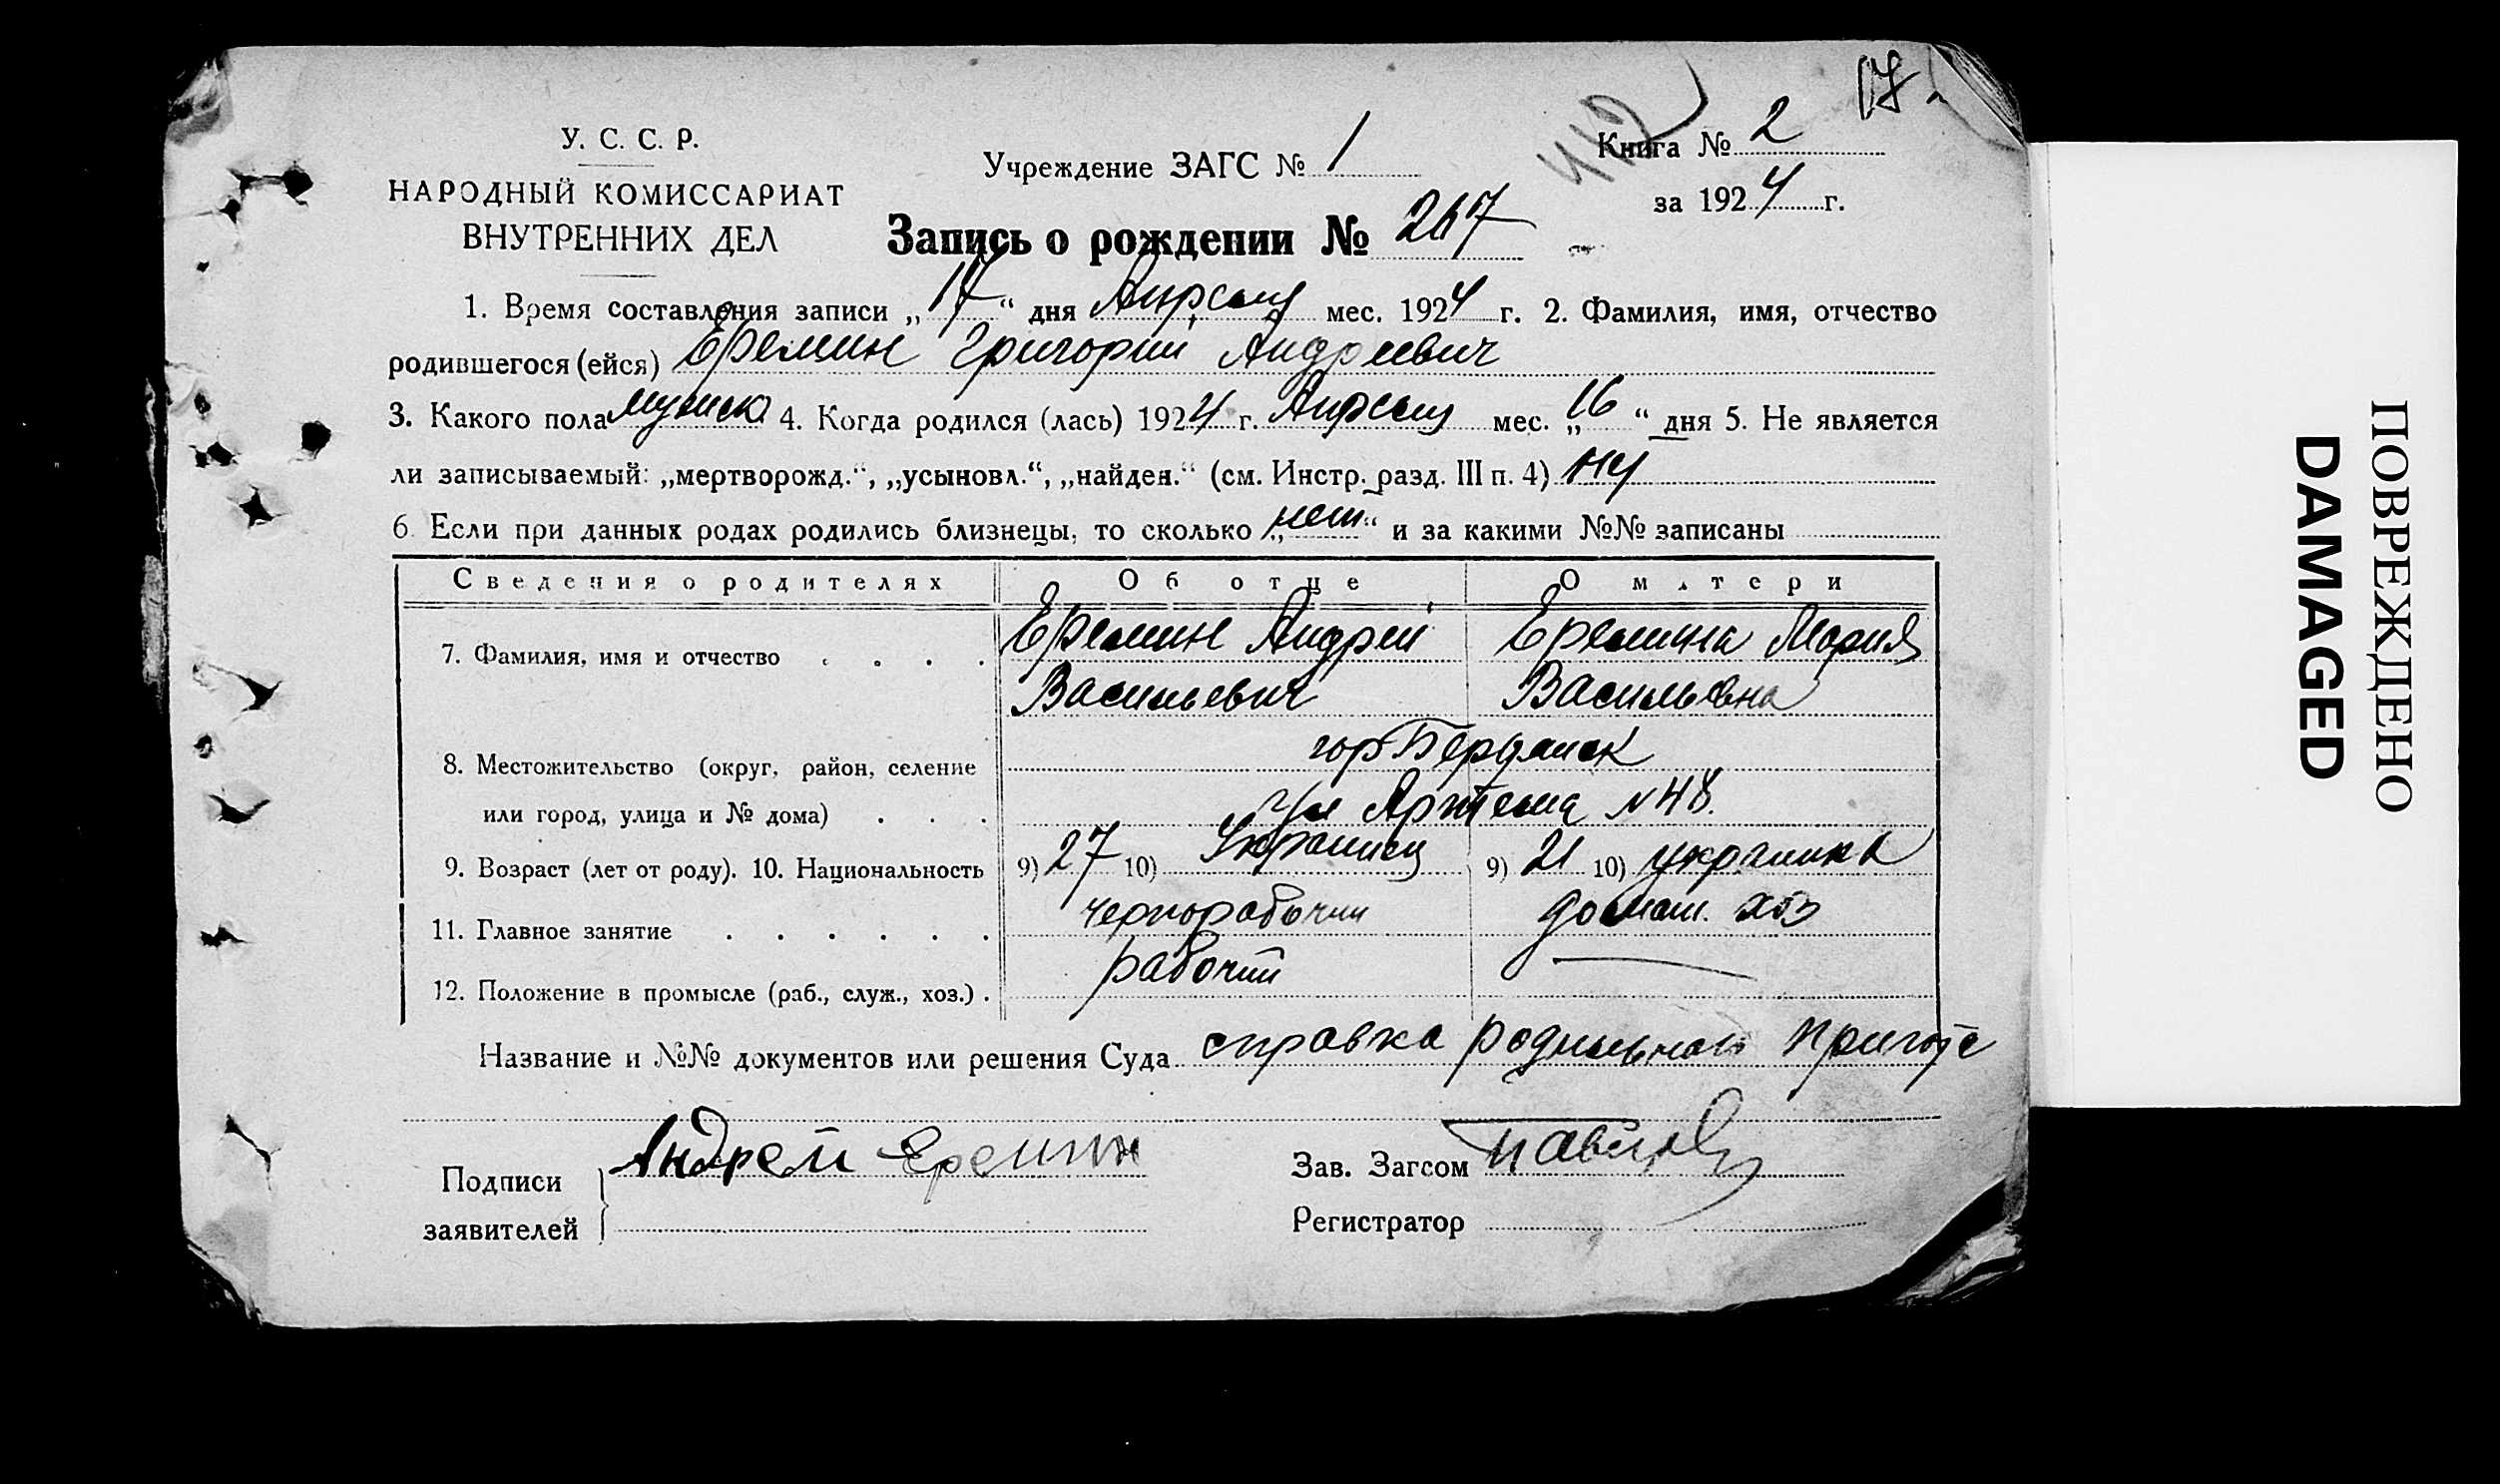 17
У. С. С. Р.
НАРОДНЫЙ КОМИССАРИАТ
ВНУТРЕННИХ ДЕЛ
Учреждение ЗАГС № 1
Книга № 2
за 1924 г.
Запись о рождении № 267
1. Время составления записи „17“ дня Апреля мес. 1924 г. 2. Фамилия, имя, отчество
родившегося (ейся) Еремин Григорий Андреевич
3. Какого пола мужска 4. Когда родился (лась) 1924 г. Апреля мес. „16“ дня 5. Не является
ли записываемый: „мертворожд.“, „усыновл.“, „найден.“ (см. Инстр. разд. III п. 4)
6. Если при данных родах родились близнецы, то сколько „нет“ и за какими №№ записаны
Сведения о родителях Об отце О матери
7. Фамилия, имя и отчество Еремин Андрей Еремина Мария
Васильевич Васильевна
8. Местожительство (округ, район, селение гор Бердянск
или город, улица и № дома) ул Артема № 48.
9. Возраст (лет от роду). 10. Национальность 9) 27 10) Украинец 9) 21 10) украинка
11. Главное занятие чернорабочий домаш. хоз
12. Положение в промысле (раб., служ., хоз.) . рабочий
Название и №№ документов или решения Суда справка родильного
Подписи
заявителей
Андрей Еремин
Зав. Загсом
Регистратор
ПОВРЕЖДЕНО
DAMAGED